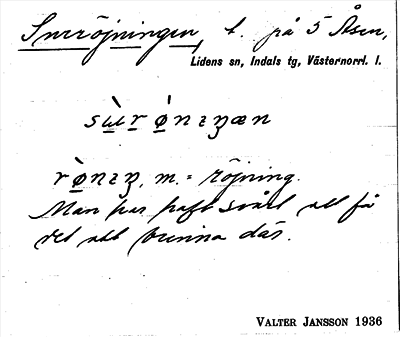 Surröjningen, t. på 5 Åsen,
Lidens sn, Indals tg, Västernorrl. l.
sùrǿnɪŋæn
rǿnɪŋ, m. = röjning.
Man har haft svårt att få
det att brinna där.
VALTER JANSSON 1936